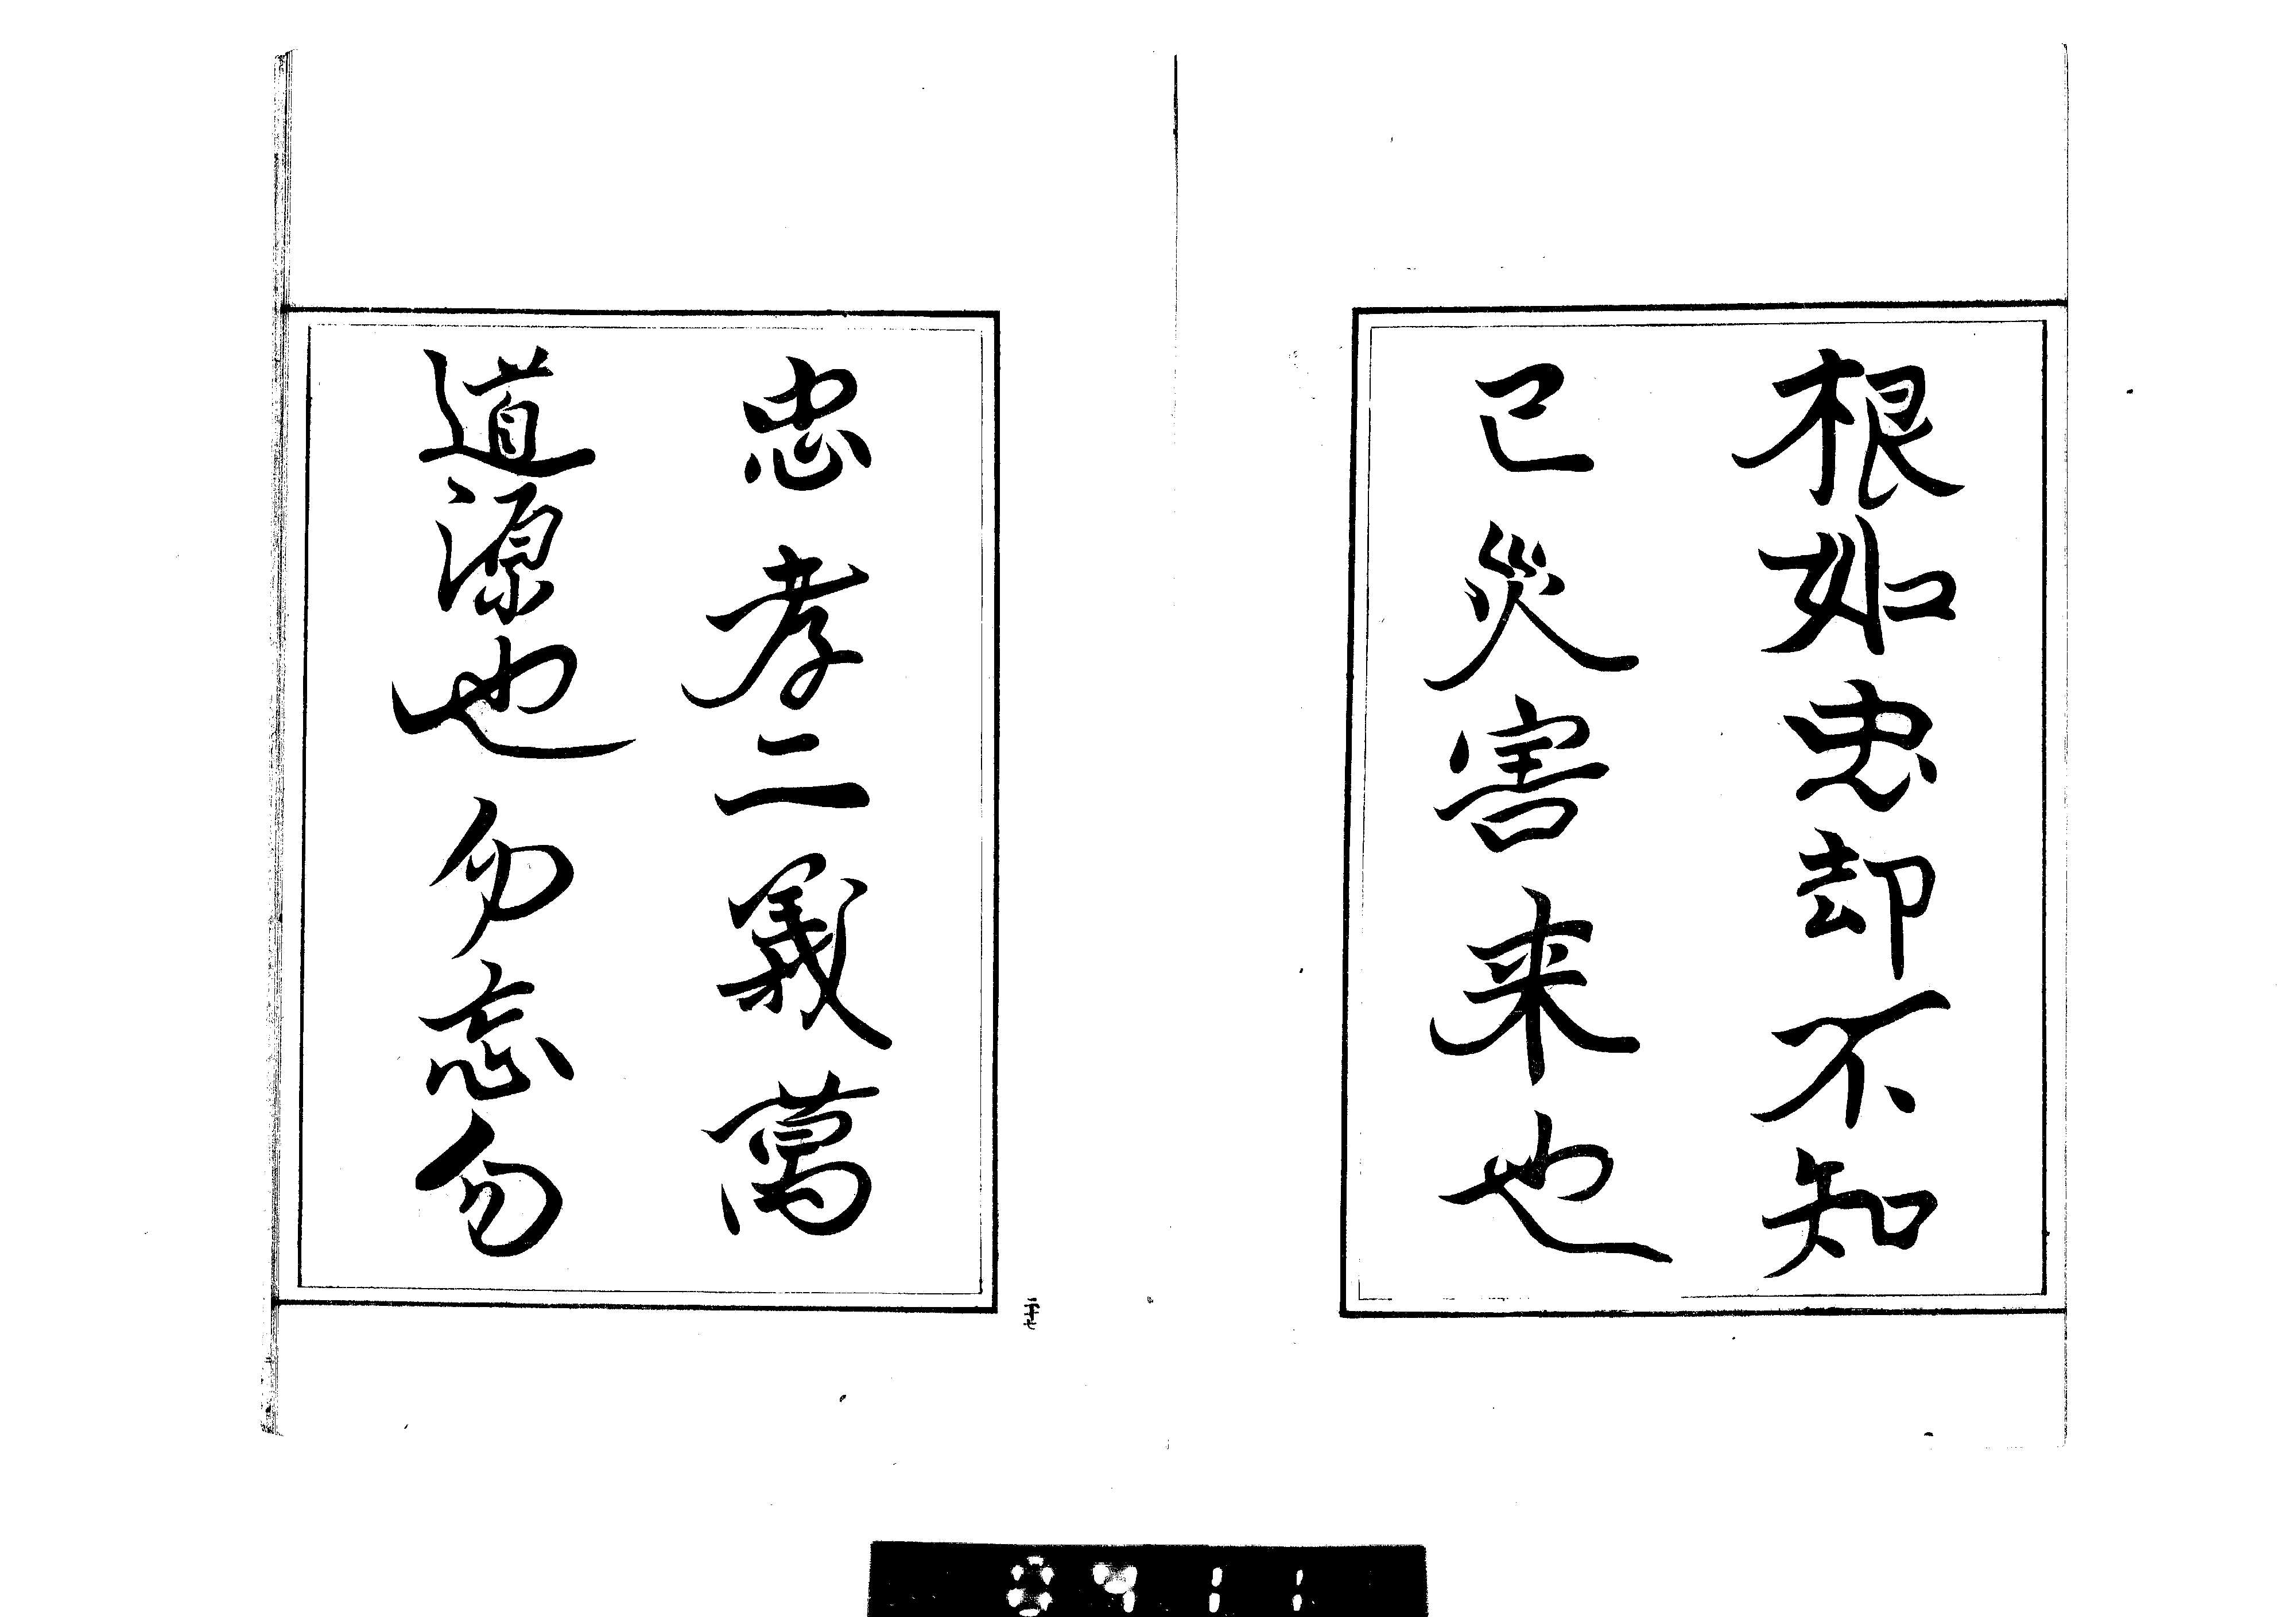 根如忠却不知
已災害来也
忠孝二義萬
道源也勿忘勿
二十七